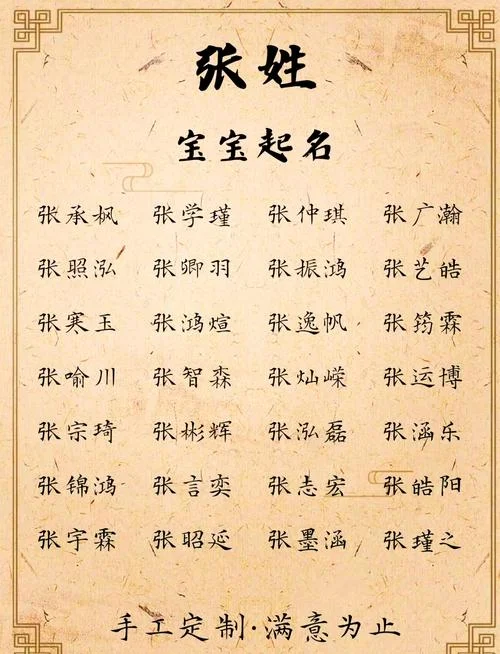 张姓
宝宝起名
张承枫 张学瑾 张仲琪 张广瀚
张照泓 张卿羽 张振鸿 张艺皓
张寒玉 张鸿煊 张逸帆 张筠霖
张喻川 张智森 张灿嵘 张运博
张宗琦 张彬辉 张泓磊 张涵乐
张锦鸿 张言奕 张志宏 张皓阳
张宇霖 张昭延 张墨涵 张瑾之
手工定制·满意为止